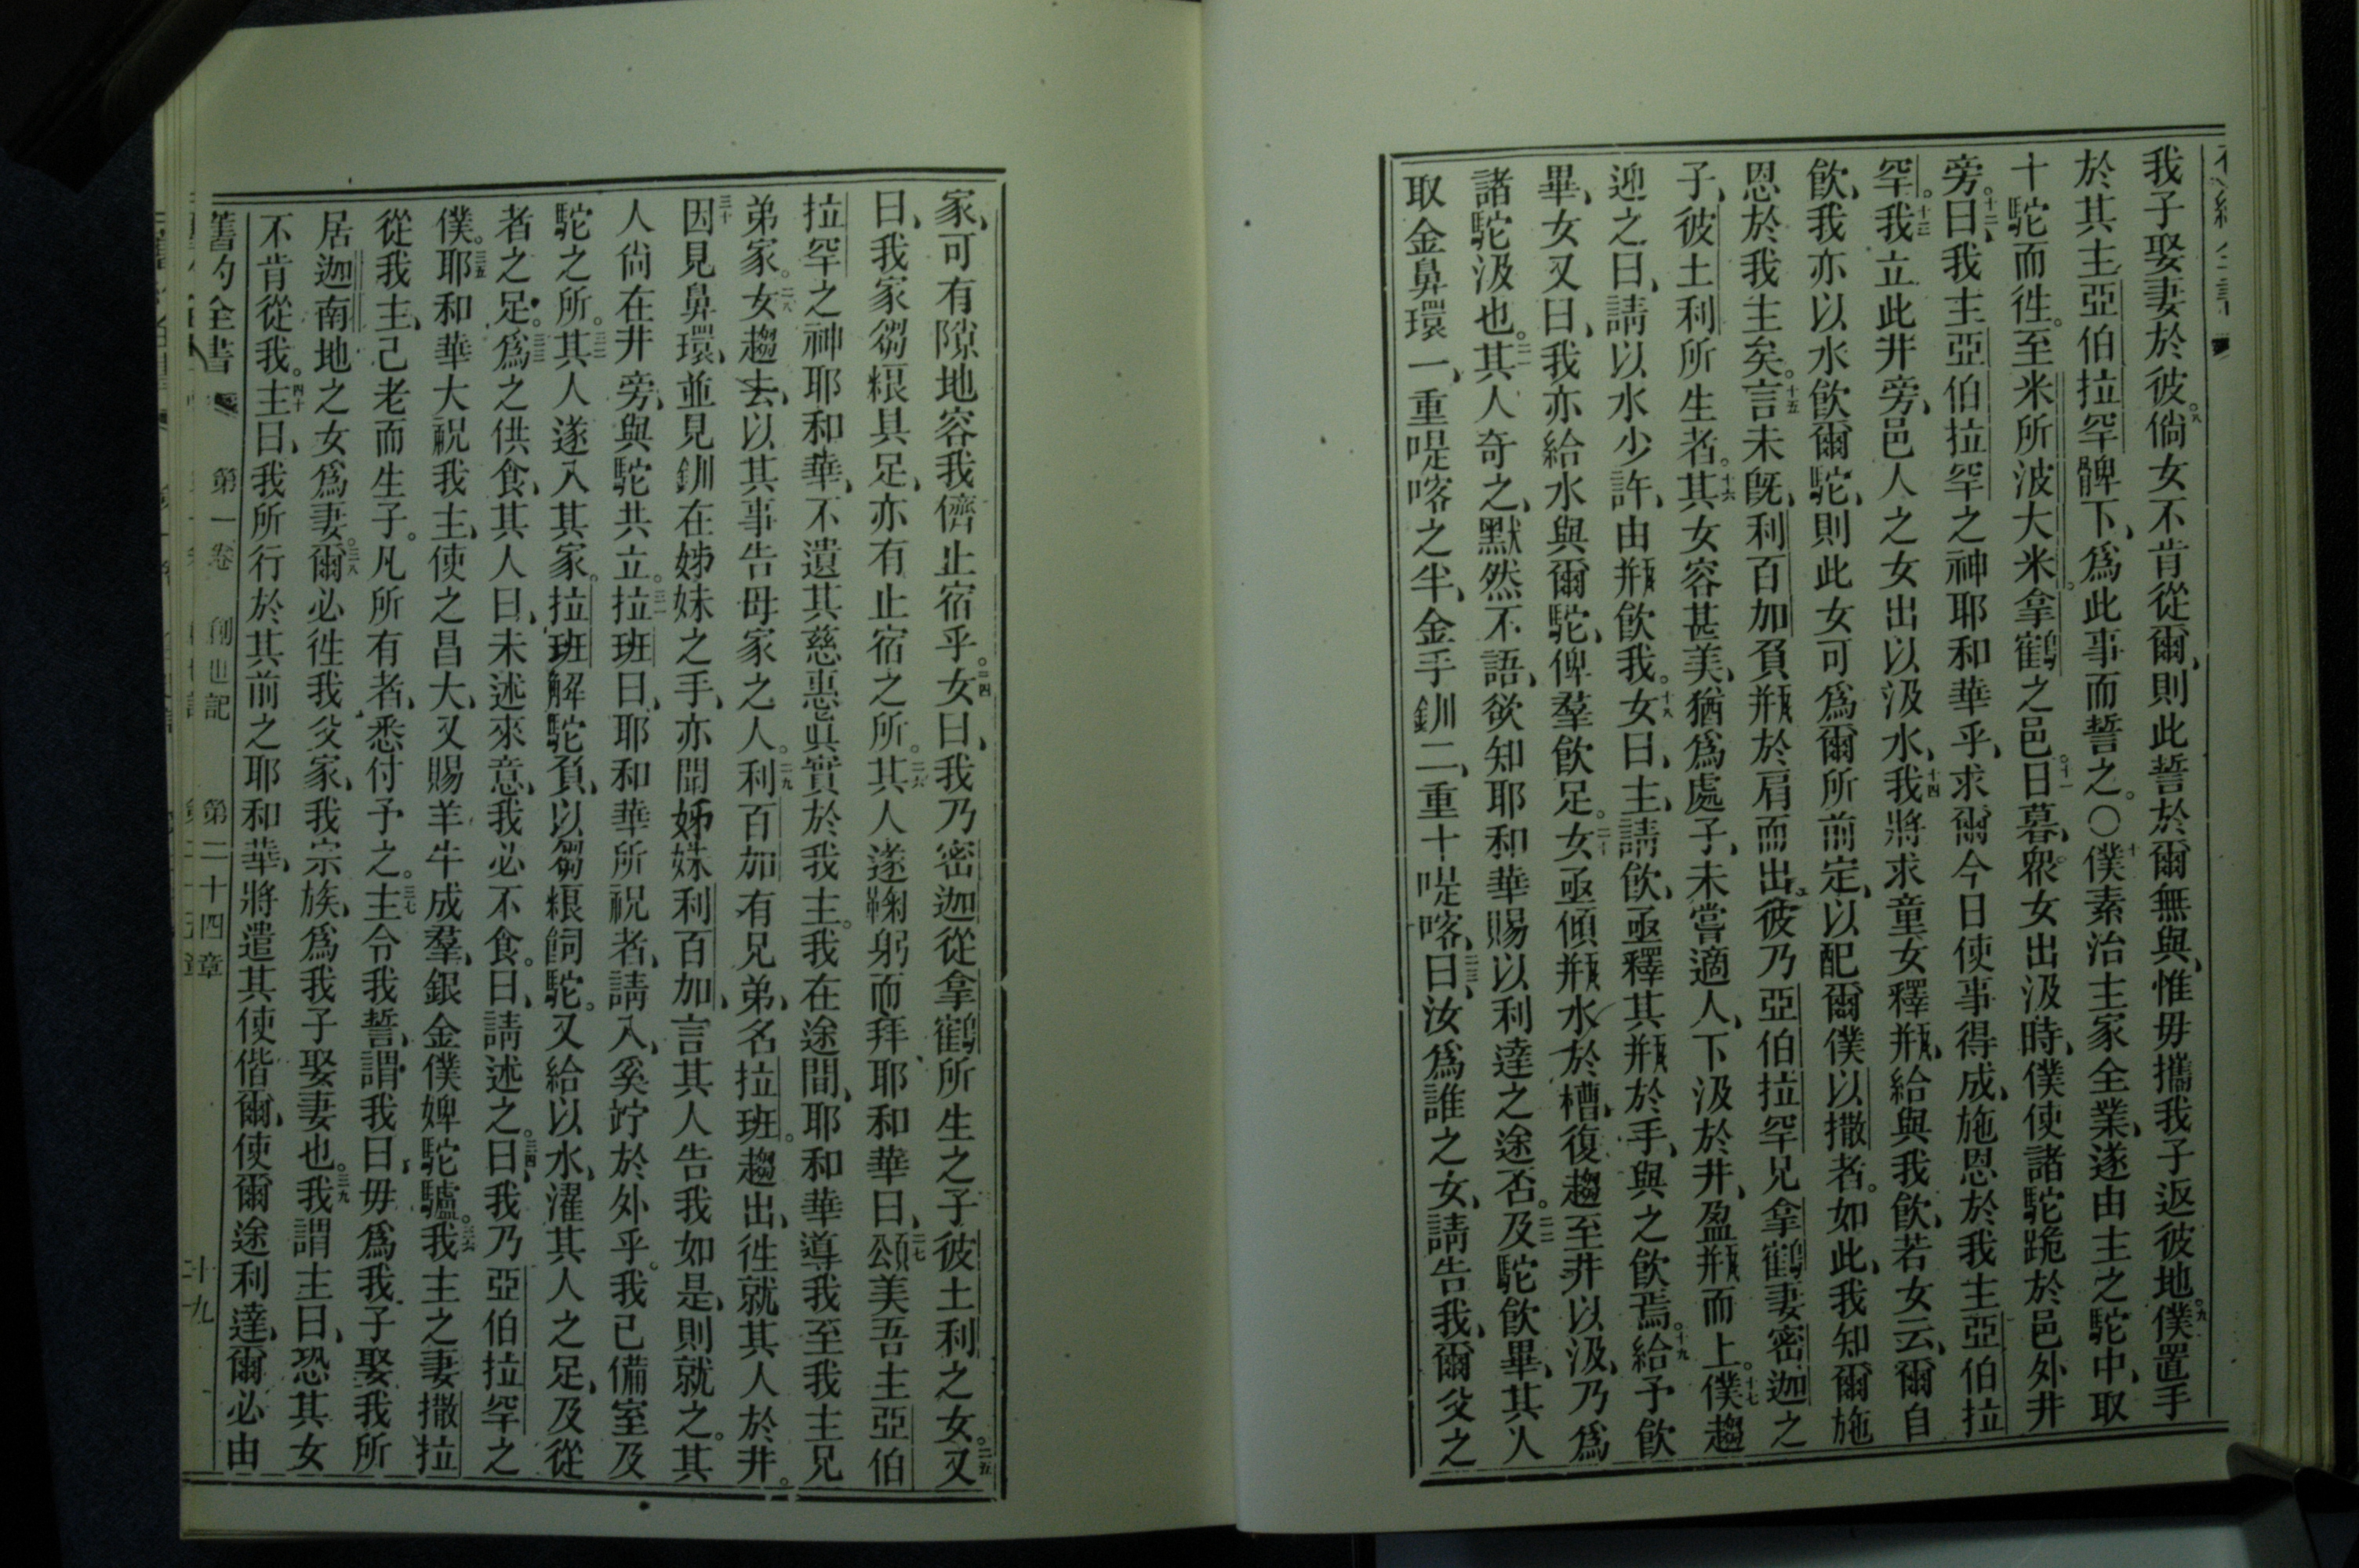 我子娶妻於彼。八倘女不肯從爾、則此誓於爾無與、惟毋攜我子返彼地。九僕置手
於其主亞伯拉罕髀下、爲此事而誓之。〇十僕素治主家全業、遂由主之駝中、取
十駝而徃。至米所波大米。拿鶴之邑。十一日暮、衆女出汲時、僕使諸駝跪於邑外井
旁。十二曰、我主亞伯拉罕之神耶和華乎、求爾今日使事得成、施恩於我主亞伯拉
罕。十三我立此井旁、邑人之女出以汲水、十四我將求童女釋瓶、給與我飮、若女云、爾自
飮、我亦以水飮爾駝、則此女可爲爾所前定、以配爾僕以撒者。如此、我知爾施
恩於我主矣。十五言未旣、利百加負瓶於肩而出、彼乃亞伯拉罕兄拿鶴妻密迦之
子、彼土利所生者。十六其女容甚美、猶爲處子、未嘗適人、下汲於井、盈瓶而上。十七僕趨
迎之曰、請以水少許、由瓶飮我。十八女曰、主、請飮、亟釋其瓶於手、與之飮焉。十九給予飮
畢、女又曰、我亦給水與爾駝、俾羣飮足。二十女亟傾瓶水於槽、復趨至井以汲、乃爲
諸駝汲也。二一其人奇之、默然不語、欲知耶和華賜以利達之途否。二二及駝飮畢、其人
取金鼻環一、重嗁喀之半、金手釧二、重十嗁喀、二三曰、汝爲誰之女、請告我、爾父之
家、可有隙地容我儕止宿乎。二四女曰、我乃密迦從拿鶴所生之子彼土利之女。二五又
曰、我家芻糧具足、亦有止宿之所。二六其人遂鞠躬而拜耶和華曰、二七頌美吾主亞伯
拉罕之神耶和華、不遺其慈惠眞實於我主。我在途間、耶和華導我至我主兄
弟家。二八女趨去、以其事告母家之人。二九利百加有兄弟、名拉班。趨出、徃就其人於井。
三十因見鼻環、並見釧在姊妹之手、亦聞姊妹利百加、言其人告我如是、則就之。其
人尙在井旁、與駝共立。三一拉班曰、耶和華所祝者、請入、奚竚於外乎。我已備室及
駝之所。三二其人遂入其家。拉班解駝負、以芻糧飼駝。又給以水、濯其人之足、及從
者之足。三三爲之供食、其人曰、未述來意、我必不食。曰、請述之。三四曰、我乃亞伯拉罕之
僕。三五耶和華大祝我主、使之昌大、又賜羊牛成羣、銀金僕婢駝驢。三六我主之妻撒拉
從我主、己老而生子。凡所有者、悉付予之。三七主令我誓、謂我曰、毋爲我子娶我所
居迦南地之女爲妻。三八爾必徃我父家、我宗族、爲我子娶妻也。三九我謂主曰、恐其女
不肯從我。四十主曰、我所行於其前之耶和華、將遣其使偕爾、使爾途利達、爾必由
舊約全書 第一卷 創世記 第二十四章 十九